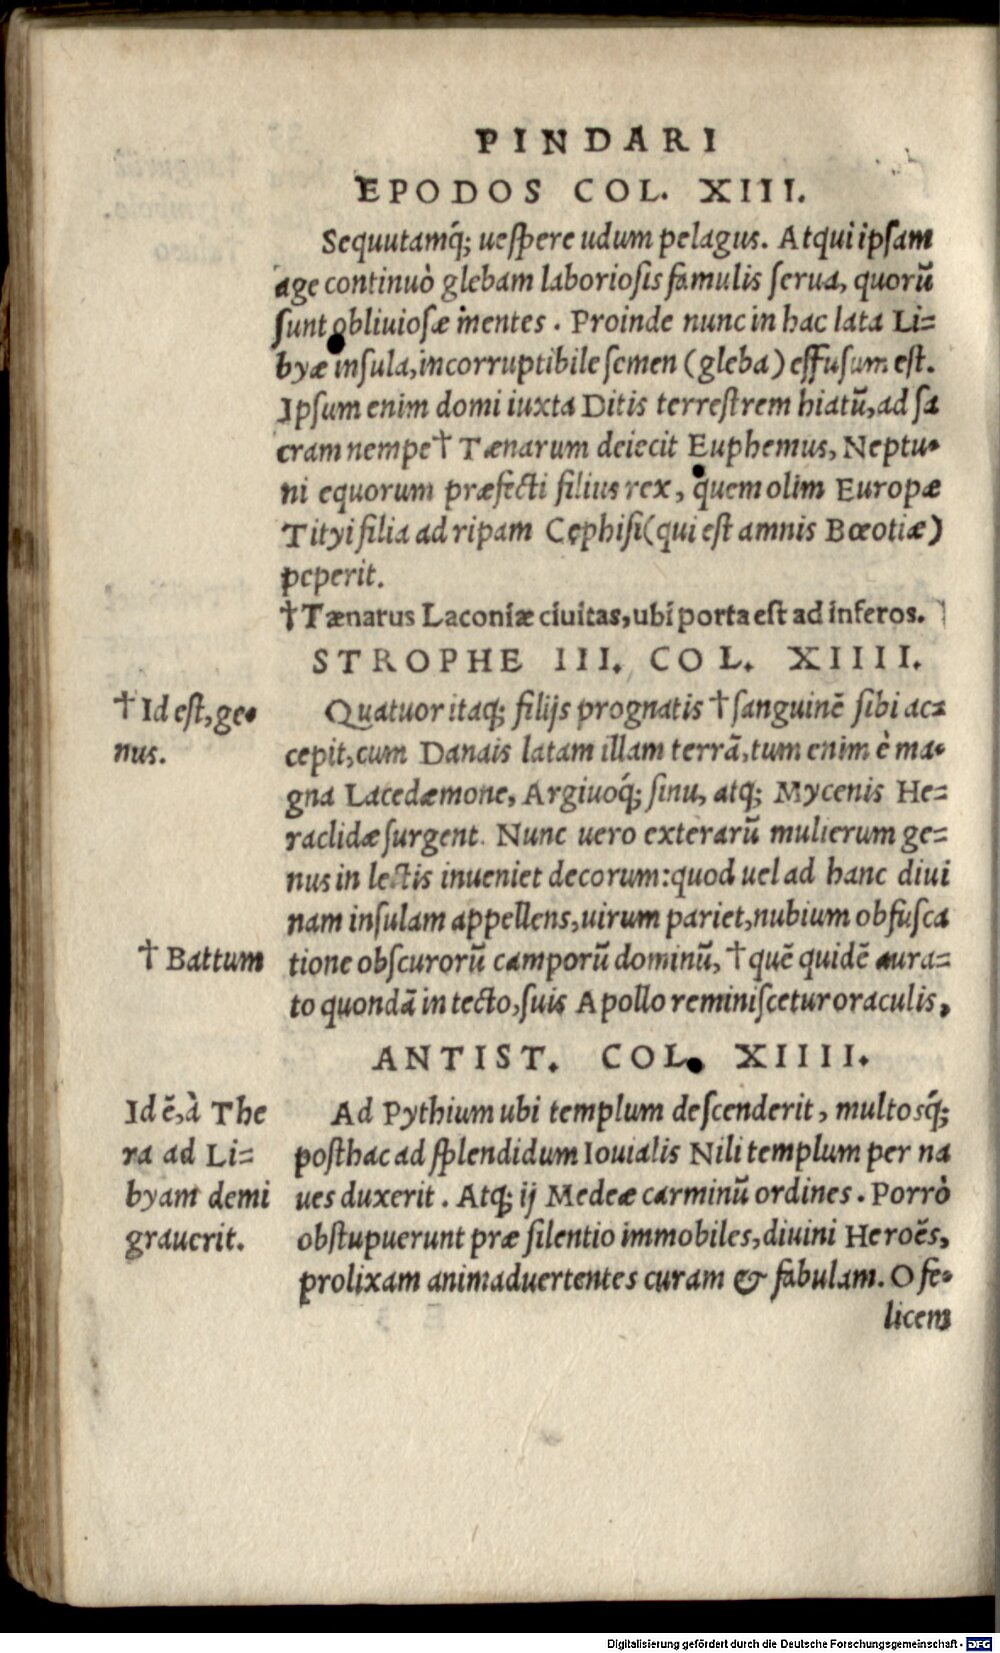 PINDARI
EPODOS COL. XIII.
Sequutamq́; uespere udum pelagus. Atqui ipsam
age continuò glebam laboriosis famulis serua, quorũ
sunt obliuiosæ mentes. Proinde nunc in hac lata Li=
byæ insula, incorruptibile semen (gleba) effusum est.
Ipsum enim domi iuxta Ditis terrestrem hiatũ, ad sa
cram nempe † Tænarum deiecit Euphemus, Neptu-
ni equorum præfecti filius rex, quem olim Europæ
Tityi filia ad ripam Cephisi (qui est amnis Bœotiæ)
peperit.
† Tænarus Laconiæ ciuitas, ubi porta est ad inferos.
STROPHE III. COL. XIIII.
† Id est, ge-
nus.
Quatuor itaq; filijs prognatis † sanguinẽ sibi ac=
cepit, cum Danais latam illam terrã, tum enim è ma-
gna Lacedæmone, Argiuoq́; sinu, atq; Mycenis He=
raclidæ surgent. Nunc uero exterarũ mulierum ge=
nus in lectis inueniet decorum: quod uel ad hanc diui
nam insulam appellens, uirum pariet, nubium obfusca
† Battum
tione obscurorũ camporũ dominũ, † quẽ quidẽ aura=
to quondã in tecto, suis Apollo reminiscetur oraculis,
ANTIST. COL. XIIII.
Id ẽ, à The
ra ad Li=
byam demi
grauerit.
Ad Pythium ubi templum descenderit, multosq́;
posthac ad splendidum Iouialis Nili templum per na
ues duxerit. Atq; ij Medeæ carminũ ordines. Porrò
obstupuerunt præ silentio immobiles, diuini Heroẽs,
prolixam animaduertentes curam & fabulam. O fe-
licem
Digitalisierung gefördert durch die Deutsche Forschungsgemeinschaft - DFG